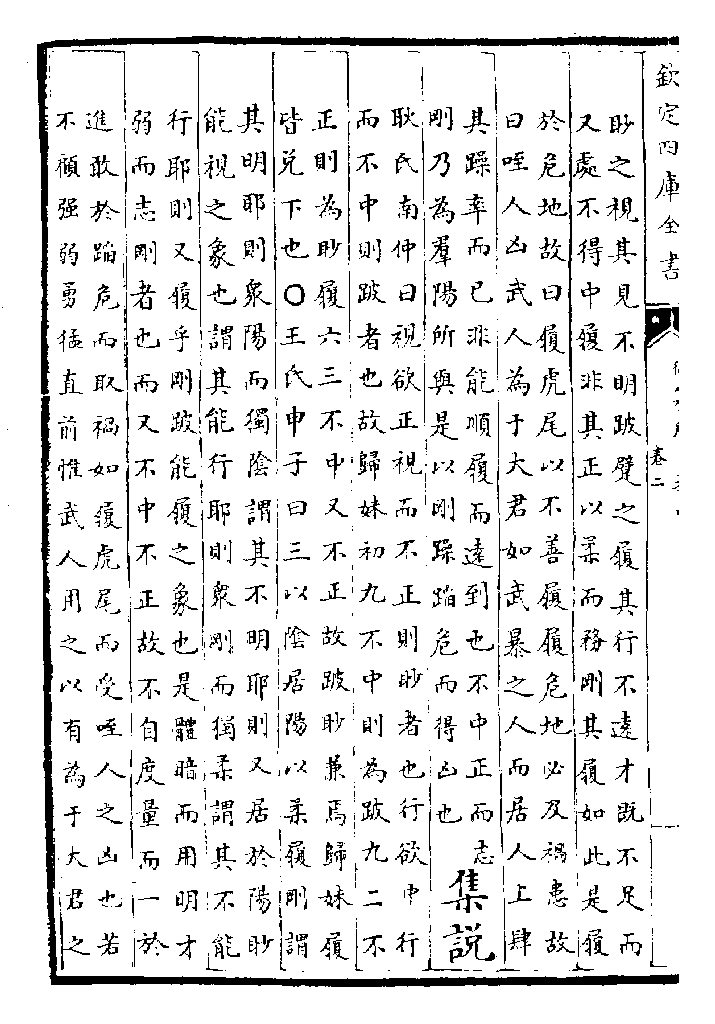 欽定四庫全書
卷二
眇之視其見不明跛躄之履其行不遠才既不足而
又處不得中履非其正以柔而務剛其履如此是履
於危地故曰履虎尾以不善履履危地必及禍患故
曰咥人凶武人為于大君如武暴之人而居人上肆
其躁率而已非能順履而遠到也不中正而志
剛乃為羣陽所與是以剛躁蹈危而得凶也
集說
耿氏南仲曰視欲正視而不正則眇者也行欲中行
而不中則跛者也故歸妹初九不中則為跛九二不
正則為眇履六三不中又不正故跛眇兼焉歸妹履
皆兌下也○王氏申子曰三以陰居陽以柔履剛謂
其明耶則衆陽而獨陰謂其不明耶則又居於陽眇
能視之象也謂其能行耶則衆剛而獨柔謂其不能
行耶則又履乎剛跛能履之象也是體暗而用明才
弱而志剛者也而又不中不正故不自度量而一於
進敢於蹈危而取禍如履虎尾而受咥人之凶也若
不顧强弱勇猛直前惟武人用之以有為于大君之